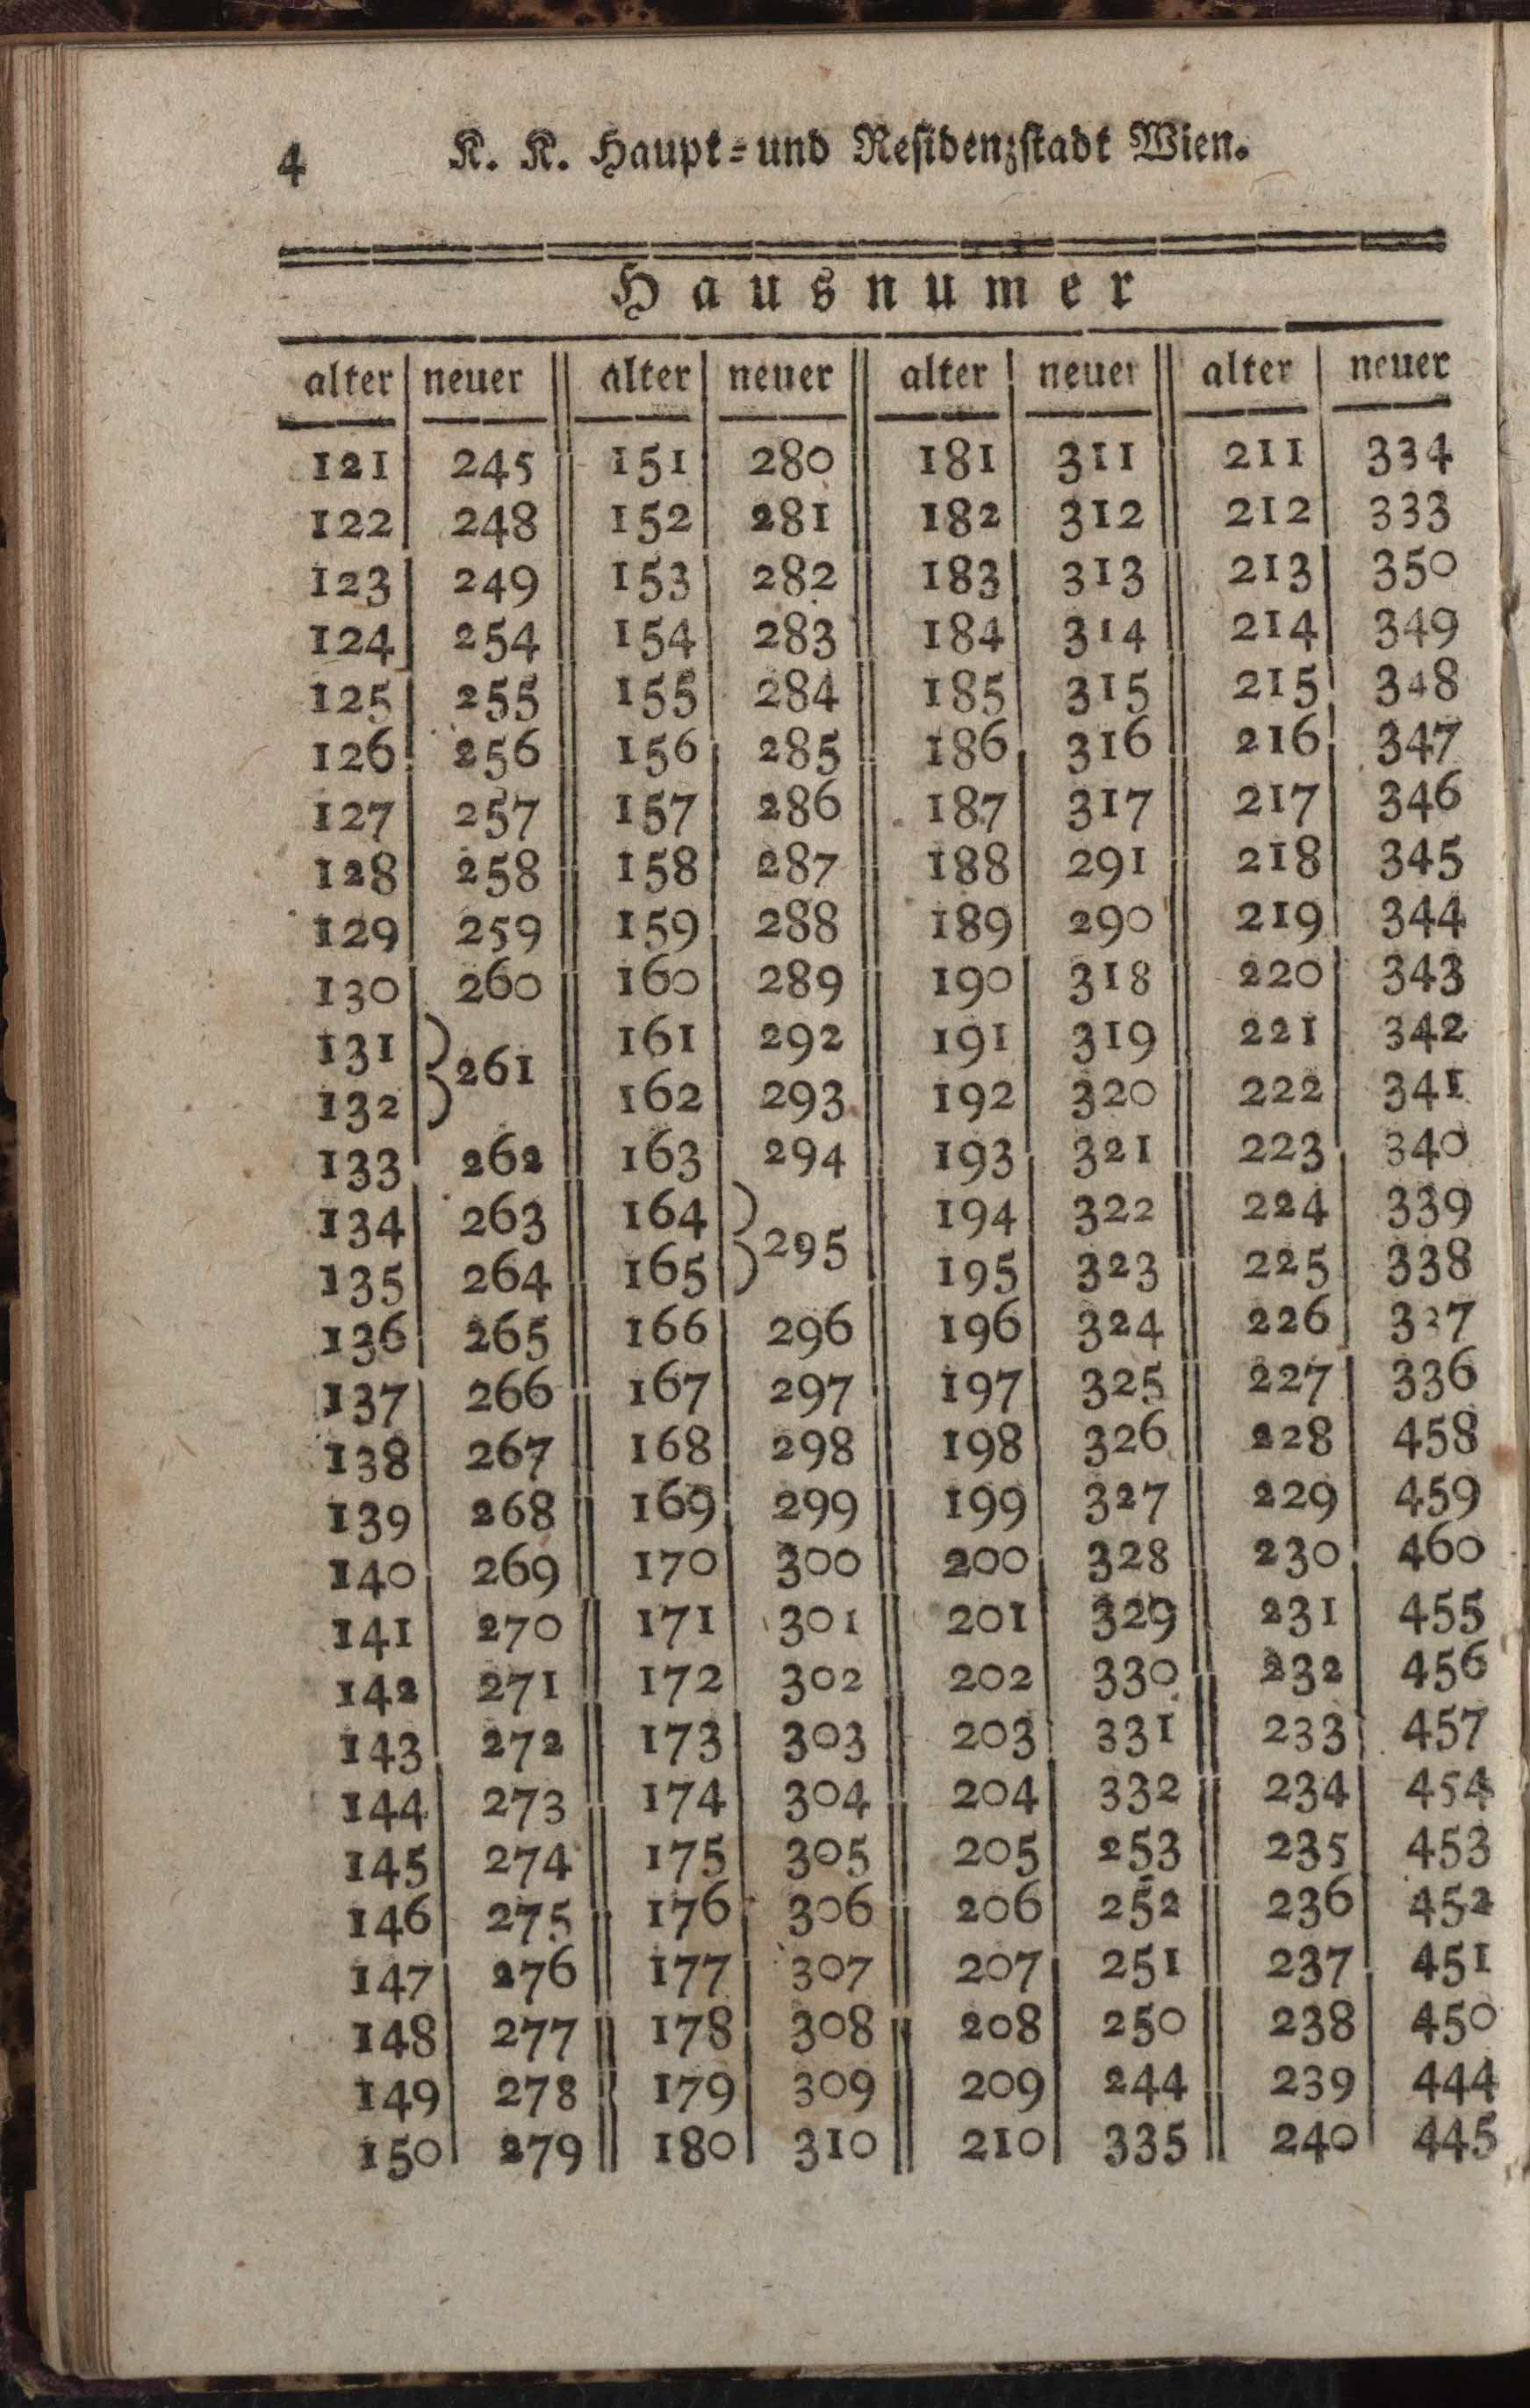 4 K. K. Haupt- und Residenzstadt Wien.
Hausnumer
alter neuer alter neuer alter neuer alter neuer
121 245 151 280 181 311 211 334
122 248 152 281 182 312 212 333
123 249 153 282 183 313 213 350
124 254 154 283 184 314 214 349
125 255 155 284 185 315 215 348
126 256 156 285 186 316 216 347
127 257 157 286 187 317 217 346
128 258 158 287 188 291 218 345
129 259 159 288 189 290 219 344
130 260 160 289 190 318 220 343
131 261 161 292 191 319 221 342
132 162 293 192 320 222 341
133 262 163 294 193 321 223 340
134 263 164 295 194 322 224 339
135 264 165 195 323 225 338
136 265 166 296 196 324 226 337
137 266 167 297 197 325 227 336
138 267 168 298 198 326 228 458
139 268 169 299 199 327 229 459
140 269 170 300 200 328 230 460
141 270 171 301 201 329 231 455
142 271 172 302 202 330 232 456
143 272 173 303 203 331 233 457
144 273 174 304 204 332 234 454
145 274 175 305 205 253 235 453
146 275 176 306 206 252 236 452
147 276 177 307 207 251 237 451
148 277 178 308 208 250 238 450
149 278 179 309 209 244 239 444
150 279 180 310 210 335 240 445